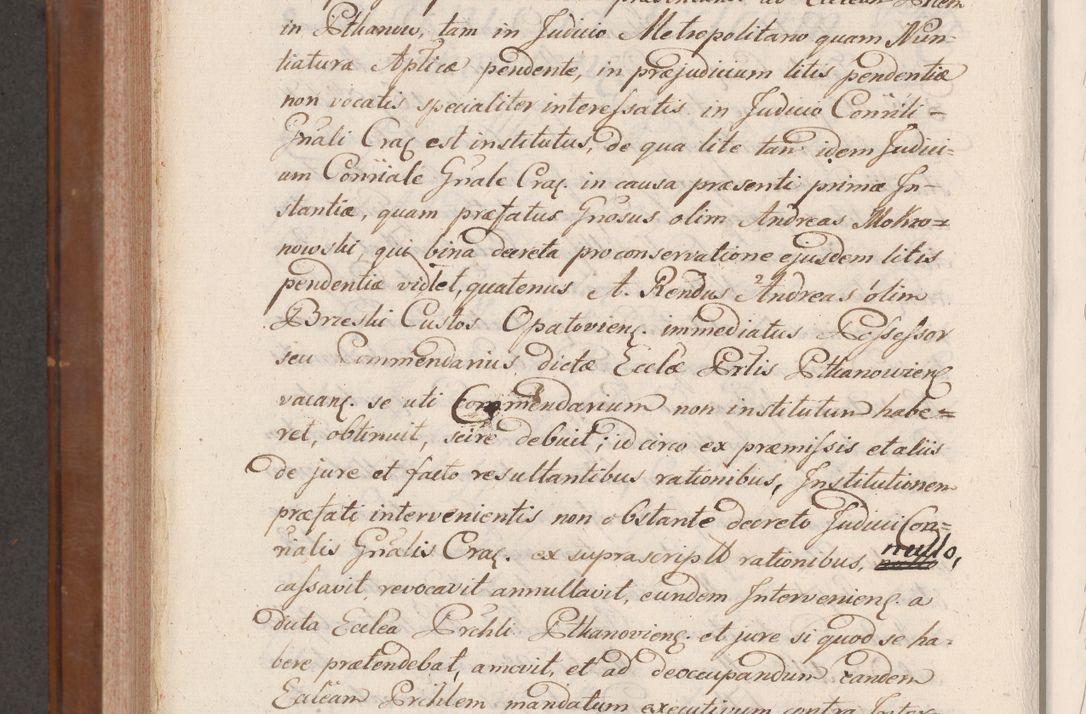 in Pthanow, tam in Judicio Metropolitano quam Nun-
tiaturæ Aplicæ pendente, in præjudicium litis pendentiæ
non vocatis specialiter interessatis in Judicio Conñli-
Gñali Crac est institutus, de qua lite tam idem Judici-
um Conñale Gñale Crac. in causa præsenti primæ In-
stantiæ, quam præfatus Gnosus olim Andreas Mokro=
nowski, qui bina decreta pro conservatione ejusdem litis
pendentiæ videt, quatenus A. Rendus Andreas olim
Brzeski Custos Opatovienc. immediatus Possessor
seu Commendarius dictæ Ecclæ Prlis Pthanovienc
vacanc. se uti Commendarium non institutum habe=
ret, obtinuit, scire debuit; idcirco ex præmissis et aliis
de jure et facto resultantibus rationibus, Institutionem
præfati intervenientis non obstante decreto Judicii Con=
rialis Gñalis Crac. ex suprascriptis rationibus, nullo,
cassavit revocavit annullavit, eundem Intervenienc. a
dicta Ecclea Prchli Pthanovienc. et jure si quod se ha-
bere prætendebat, amovit, et ad deoccupandum eandem
Eccleam Prchlem mandatum executivum contra Inter-